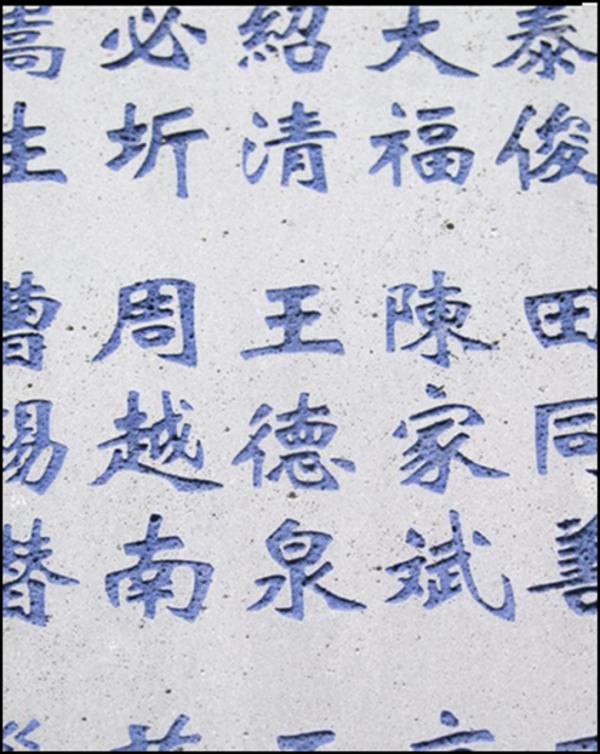 泰俊
大福
紹清
必圻
生
田同善
陳家斌
王德泉
周越南
曹